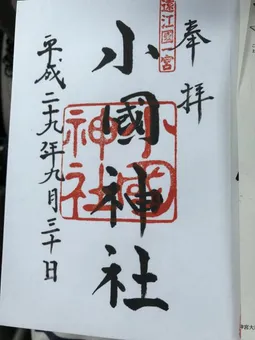 奉拝
遠江國一宮
小國神社
小國神社
平成二十九年九月三十日